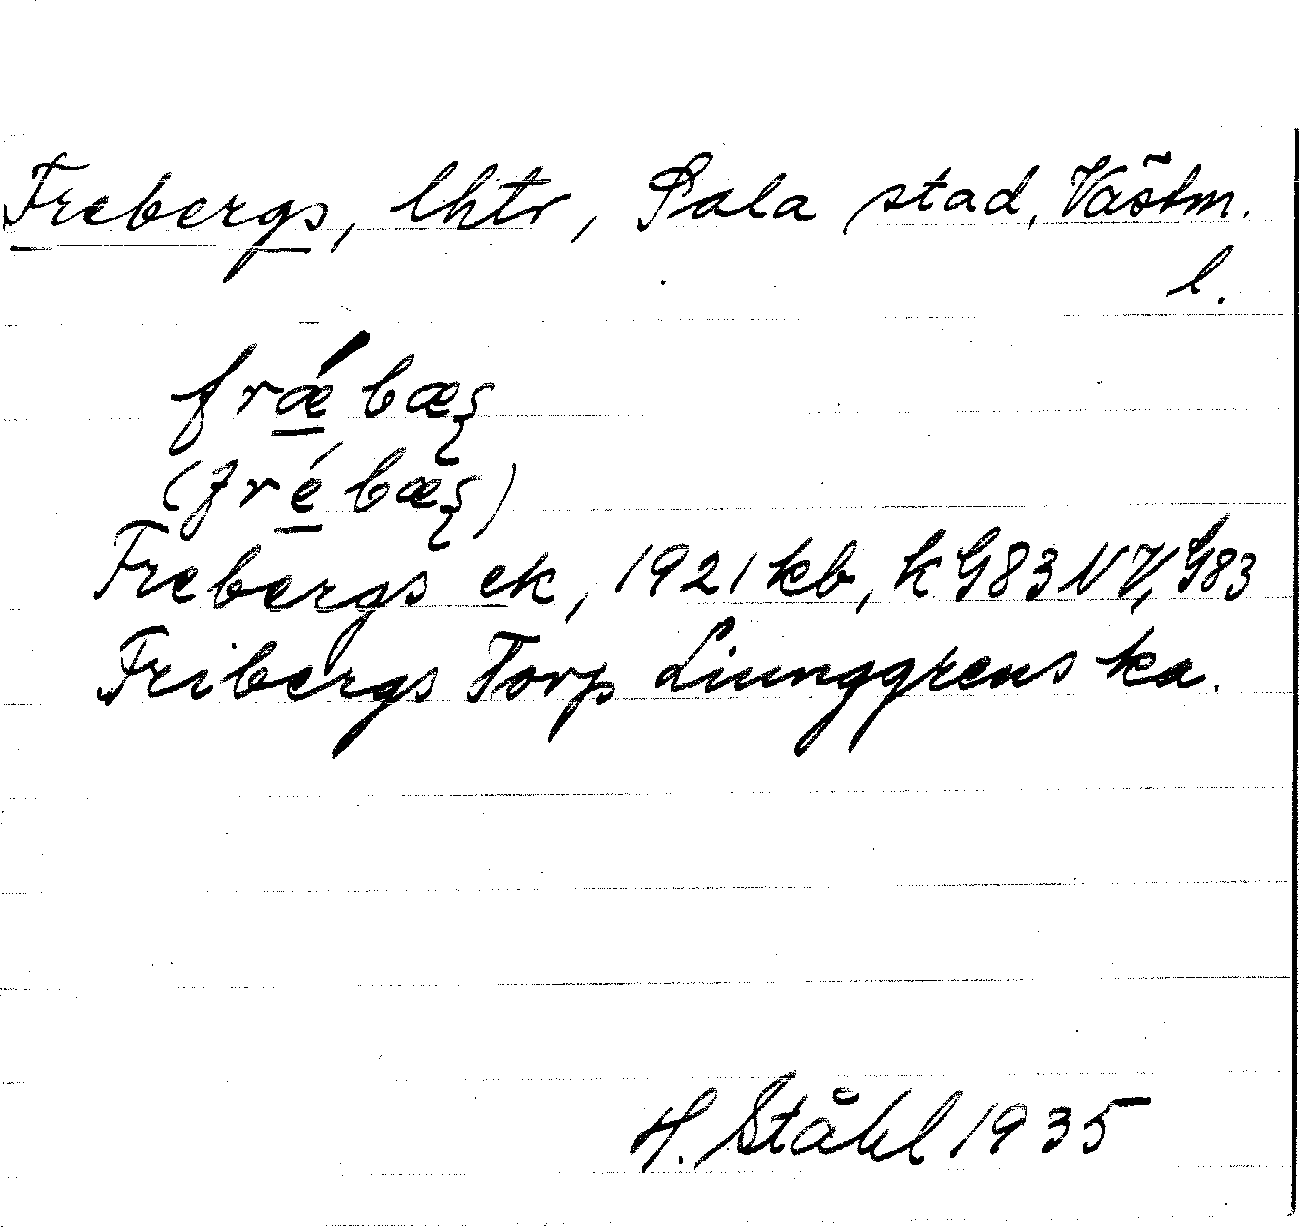 Frebergs, lhtr, Sala stad, Västm.
l.
frǽbæȿ
(frébæȿ)
Frebergs ek, 1921 kb, k G83 NV, G83
Fribergs Torp Liunggrens ka.
H. Ståhl 1935